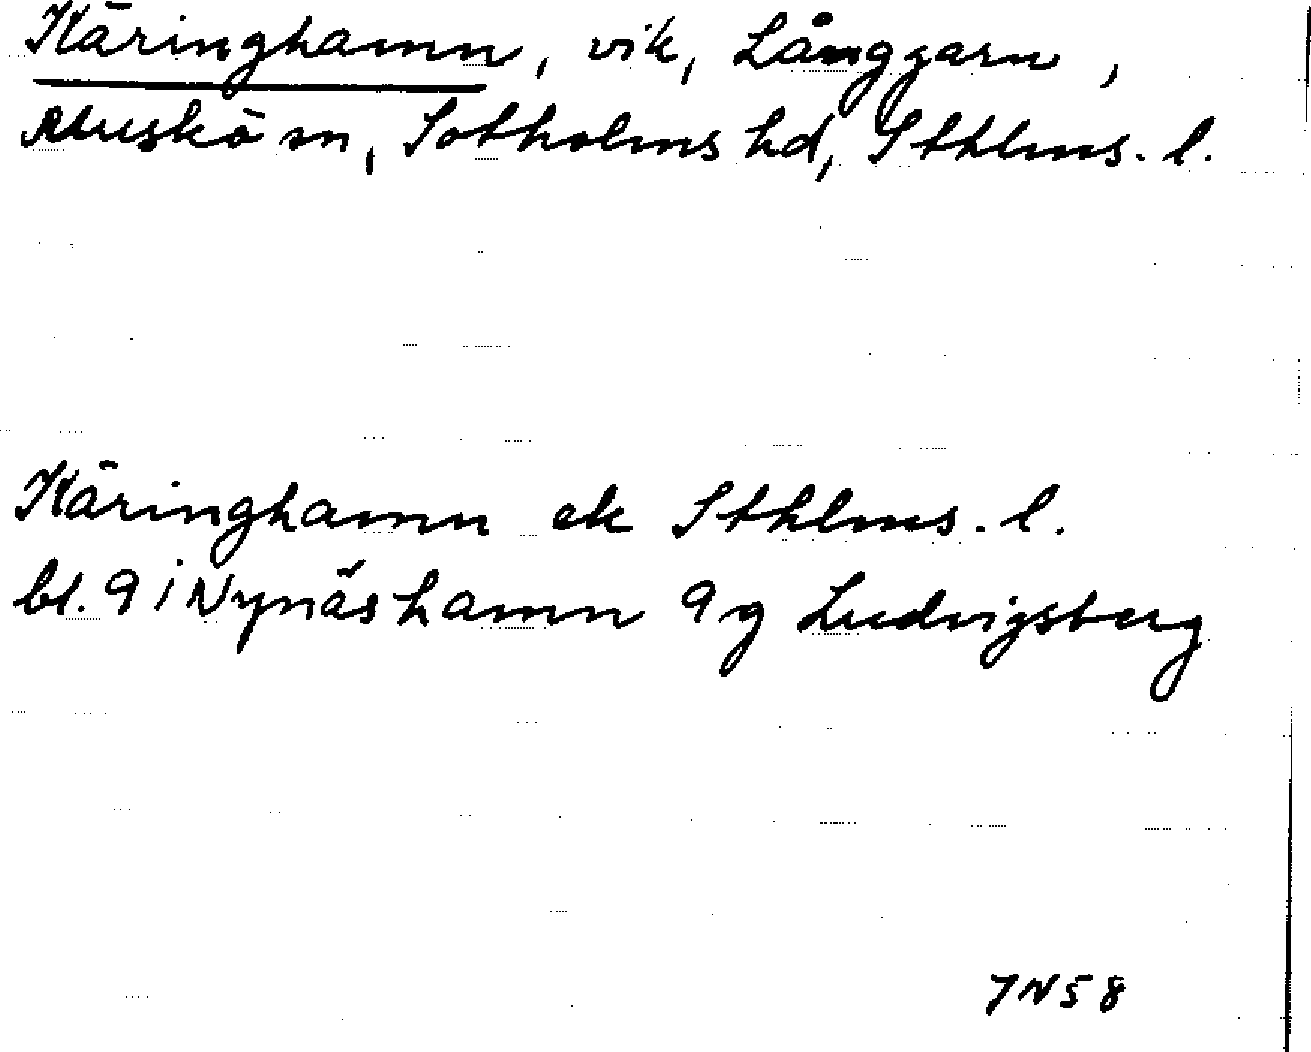 Käringhamn, vik, Långgarn,
Muskö sn, Sotholms hd, Sthlms. l.
Käringhamn ek Sthlms. l.
bl. 9 i Nynäshamn 9g Ludvigsberg
7N58